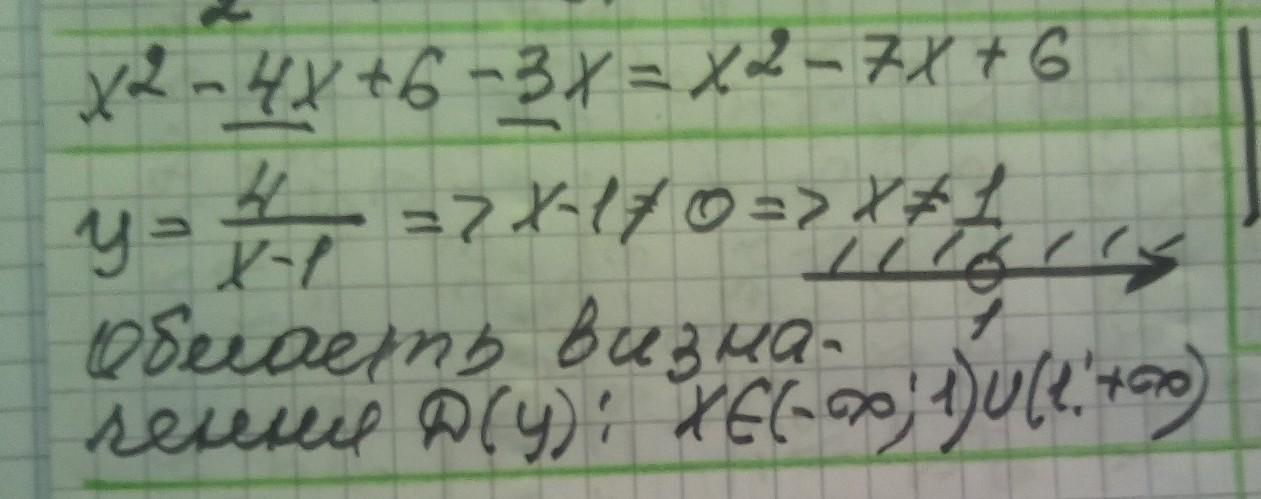 x² - 4x + 6 - 3x = x² - 7x + 6
y = 4/(x-1) => x-1 ≠ 0 => x ≠ 1
1
Область визна-
чення D(y): x∈(-∞; 1)∪(1; +∞)